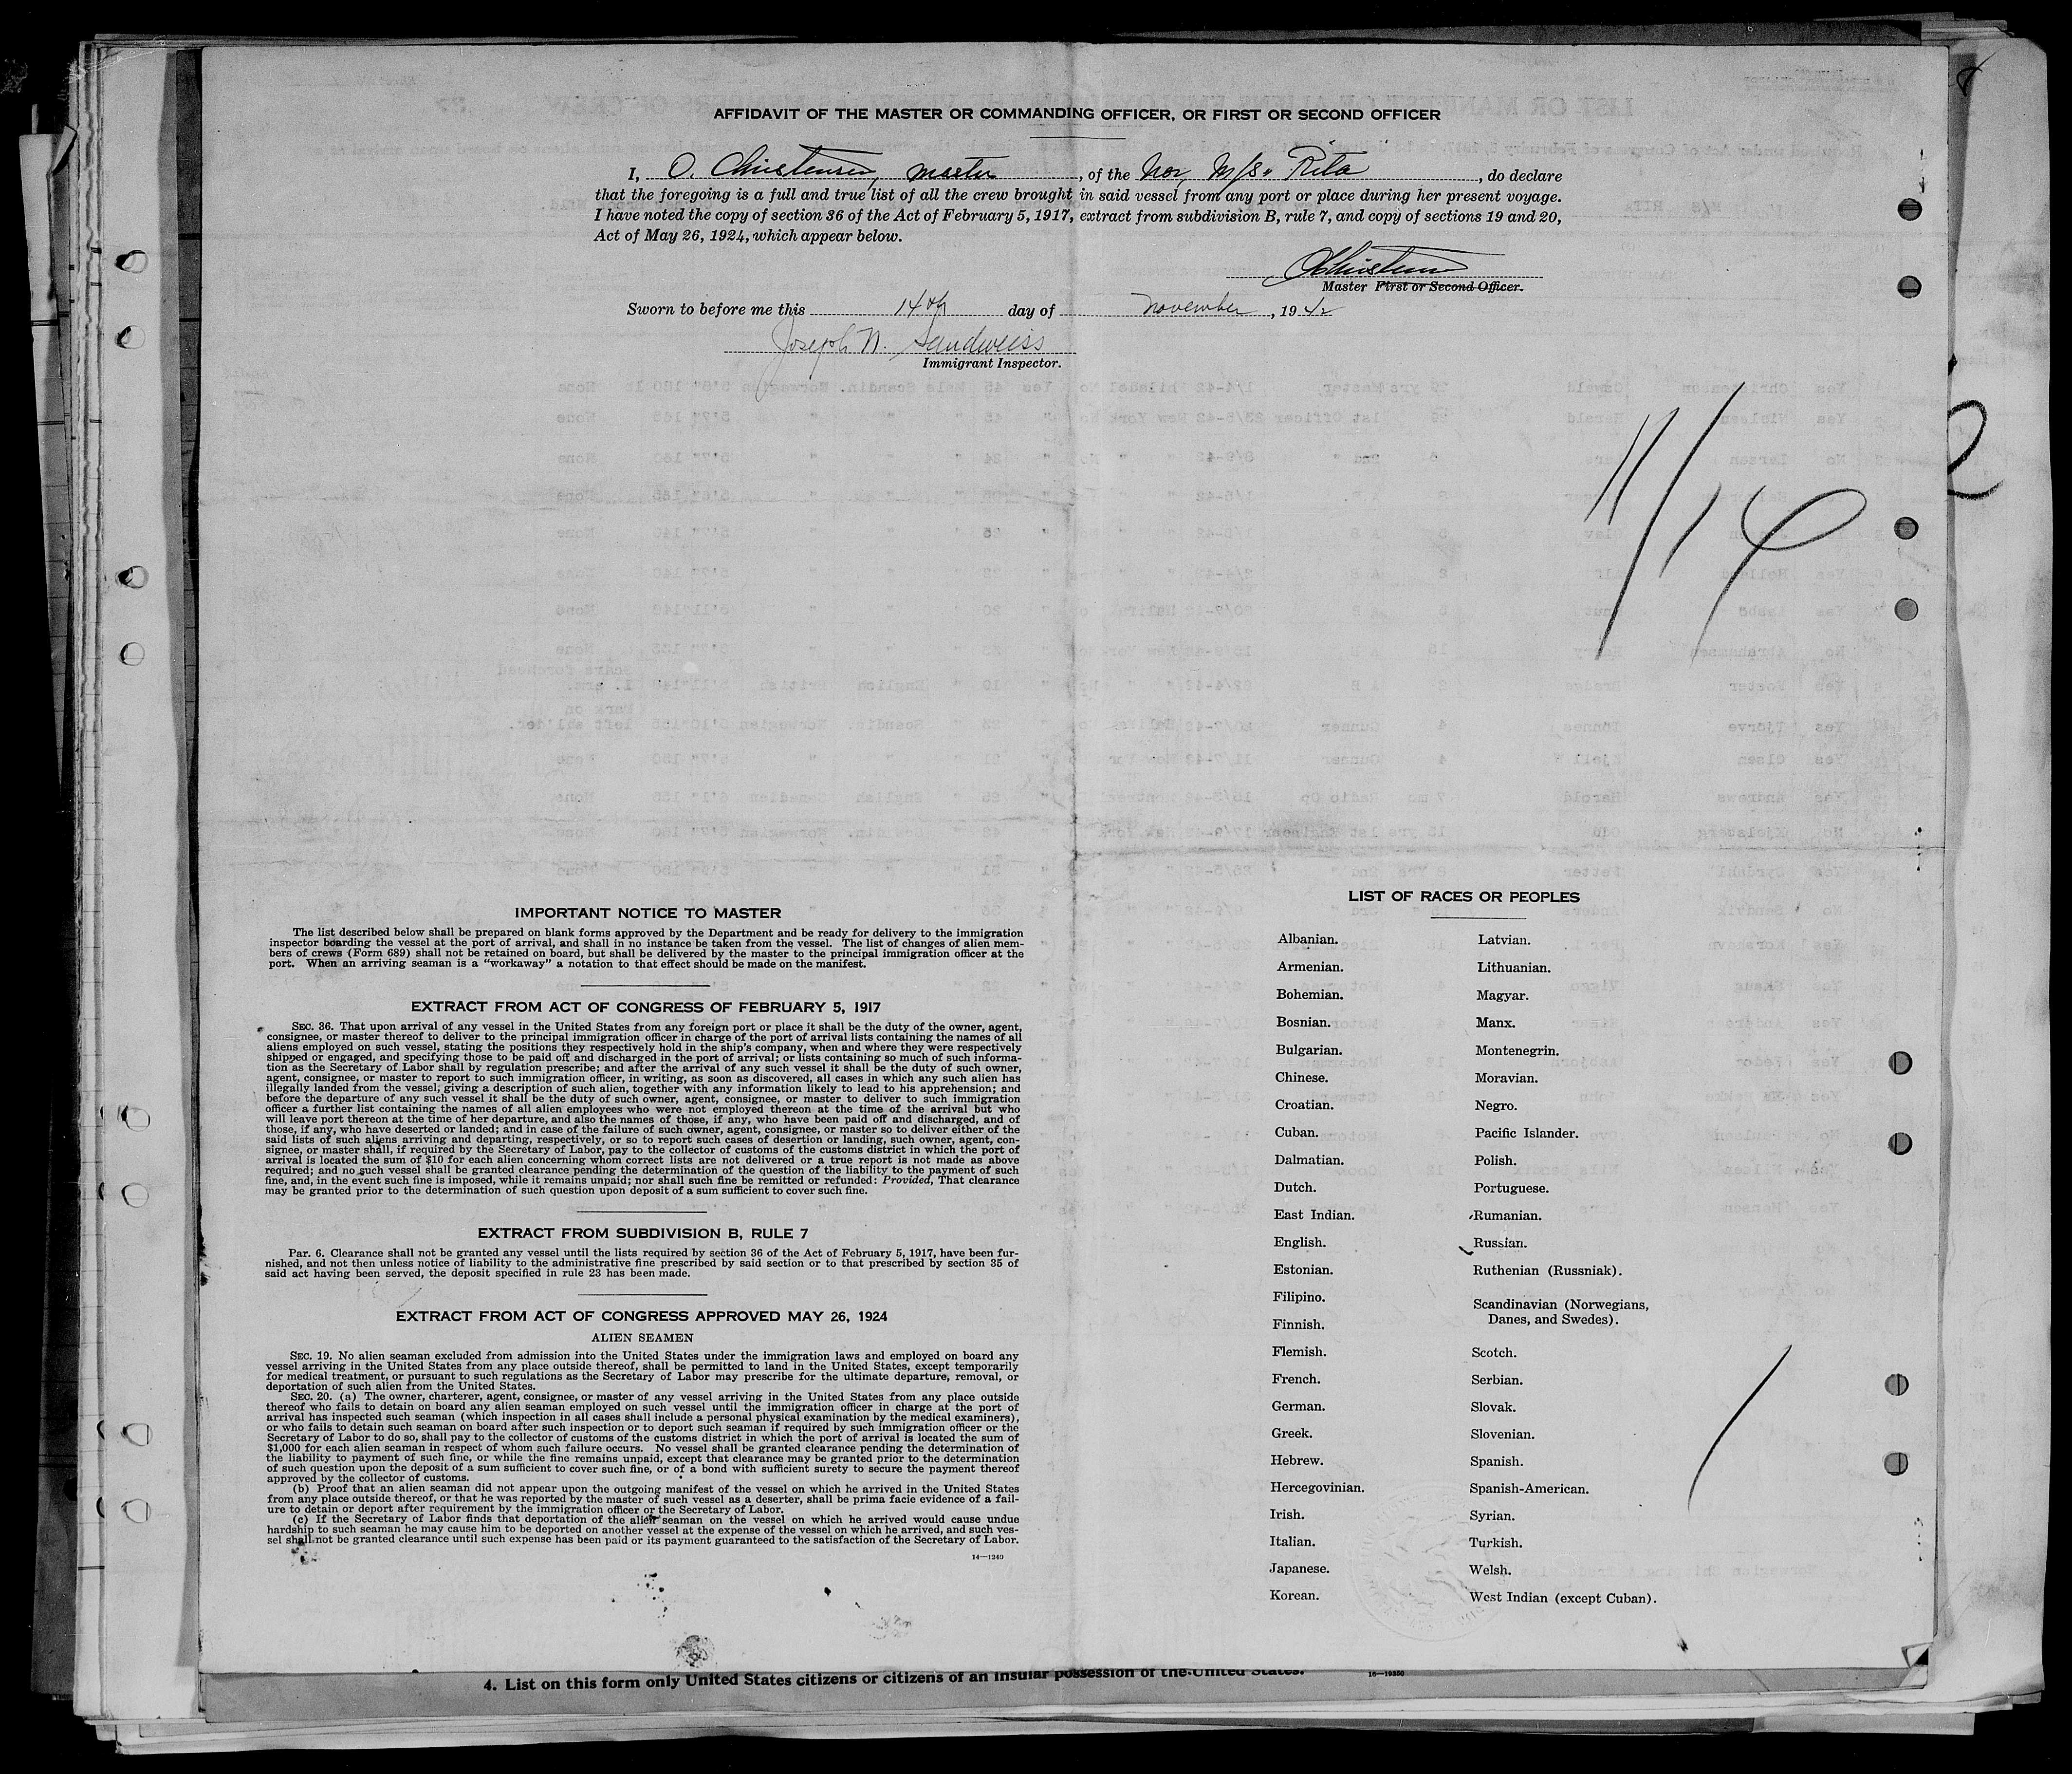 AFFIDAVIT OF THE MASTER OR COMMANDING OFFICER, OR FIRST OR SECOND OFFICER
I, O. Christensen, master, of the Nor, M/S. Rita, do declare
that the foregoing is a full and true list of all the crew brought in said vessel from any port or place during her present voyage.
I have noted the copy of section 36 of the Act of February 5, 1917, extract from subdivision B, rule 7, and copy of sections 19 and 20,
Act of May 26, 1924, which appear below.
OChristensen
Master First or Second Officer.
Sworn to before me this 14th day of November, 1942
Joseph N. Sandweiss
Immigrant Inspector.
11/14
IMPORTANT NOTICE TO MASTER
The list described below shall be prepared on blank forms approved by the Department and be ready for delivery to the immigration
inspector boarding the vessel at the port of arrival, and shall in no instance be taken from the vessel. The list of changes of alien mem-
bers of crews (Form 689) shall not be retained on board, but shall be delivered by the master to the principal immigration officer at the
port. When an arriving seaman is a “workaway” a notation to that effect should be made on the manifest.
EXTRACT FROM ACT OF CONGRESS OF FEBRUARY 5, 1917
SEC. 36. That upon arrival of any vessel in the United States from any foreign port or place it shall be the duty of the owner, agent,
consignee, or master thereof to deliver to the principal immigration officer in charge of the port of arrival lists containing the names of all
aliens employed on such vessel, stating the positions they respectively hold in the ship's company, when and where they were respectively
shipped or engaged, and specifying those to be paid off and discharged in the port of arrival; or lists containing so much of such informa-
tion as the Secretary of Labor shall by regulation prescribe; and after the arrival of any such vessel it shall be the duty of such owner,
agent, consignee, or master to report to such immigration officer, in writing, as soon as discovered, all cases in which any such alien has
illegally landed from the vessel, giving a description of such alien, together with any information likely to lead to his apprehension; and
before the departure of any such vessel it shall be the duty of such owner, agent, consignee, or master to deliver to such immigration
officer a further list containing the names of all alien employees who were not employed thereon at the time of the arrival but who
will leave port thereon at the time of her departure, and also the names of those, if any, who have been paid off and discharged, and of
those, if any, who have deserted or landed; and in case of the failure of such owner, agent, consignee, or master so to deliver either of the
said lists of such aliens arriving and departing, respectively, or so to report such cases of desertion or landing, such owner, agent, con-
signee, or master shall, if required by the Secretary of Labor, pay to the collector of customs of the customs district in which the port of
arrival is located the sum of $10 for each alien concerning whom correct lists are not delivered or a true report is not made as above
required; and no such vessel shall be granted clearance pending the determination of the question of the liability to the payment of such
fine, and, in the event such fine is imposed, while it remains unpaid; nor shall such fine be remitted or refunded: Provided, That clearance
may be granted prior to the determination of such question upon deposit of a sum sufficient to cover such fine.
EXTRACT FROM SUBDIVISION B, RULE 7
Par. 6. Clearance shall not be granted any vessel until the lists required by section 36 of the Act of February 5, 1917, have been fur-
nished, and not then unless notice of liability to the administrative fine prescribed by said section or to that prescribed by section 35 of
said act having been served, the deposit specified in rule 23 has been made.
EXTRACT FROM ACT OF CONGRESS APPROVED MAY 26, 1924
ALIEN SEAMEN
SEC. 19. No alien seaman excluded from admission into the United States under the immigration laws and employed on board any
vessel arriving in the United States from any place outside thereof, shall be permitted to land in the United States, except temporarily
for medical treatment, or pursuant to such regulations as the Secretary of Labor may prescribe for the ultimate departure, removal, or
deportation of such alien from the United States.
SEC. 20. (a) The owner, charterer, agent, consignee, or master of any vessel arriving in the United States from any place outside
thereof who fails to detain on board any alien seaman employed on such vessel until the immigration officer in charge at the port of
arrival has inspected such seaman (which inspection in all cases shall include a personal physical examination by the medical examiners),
or who fails to detain such seaman on board after such inspection or to deport such seaman if required by such immigration officer or the
Secretary of Labor to do so, shall pay to the collector of customs of the customs district in which the port of arrival is located the sum of
$1,000 for each alien seaman in respect of whom such failure occurs. No vessel shall be granted clearance pending the determination of
the liability to payment of such fine, or while the fine remains unpaid, except that clearance may be granted prior to the determination
of such question upon the deposit of a sum sufficient to cover such fine, or of a bond with sufficient surety to secure the payment thereof
approved by the collector of customs.
(b) Proof that an alien seaman did not appear upon the outgoing manifest of the vessel on which he arrived in the United States
from any place outside thereof, or that he was reported by the master of such vessel as a deserter, shall be prima facie evidence of a fail-
ure to detain or deport after requirement by the immigration officer or the Secretary of Labor.
(c) If the Secretary of Labor finds that deportation of the alien seaman on the vessel on which he arrived would cause undue
hardship to such seaman he may cause him to be deported on another vessel at the expense of the vessel on which he arrived, and such ves-
sel shall not be granted clearance until such expense has been paid or its payment guaranteed to the satisfaction of the Secretary of Labor.
14—1240
LIST OF RACES OR PEOPLES
Albanian.
Armenian.
Bohemian.
Bosnian.
Bulgarian.
Chinese.
Croatian.
Cuban.
Dalmatian.
Dutch.
East Indian.
English.
Estonian.
Filipino.
Finnish.
Flemish.
French.
German.
Greek.
Hebrew.
Hercegovinian.
Irish.
Italian.
Japanese.
Korean.
Latvian.
Lithuanian.
Magyar.
Manx.
Montenegrin.
Moravian.
Negro.
Pacific Islander.
Polish.
Portuguese.
Rumanian.
Russian.
Ruthenian (Russniak).
Scandinavian (Norwegians,
Danes, and Swedes).
Scotch.
Serbian.
Slovak.
Slovenian.
Spanish.
Spanish-American.
Syrian.
Turkish.
Welsh.
West Indian (except Cuban).
4. List on this form only United States citizens or citizens of an insular possession of the United States.